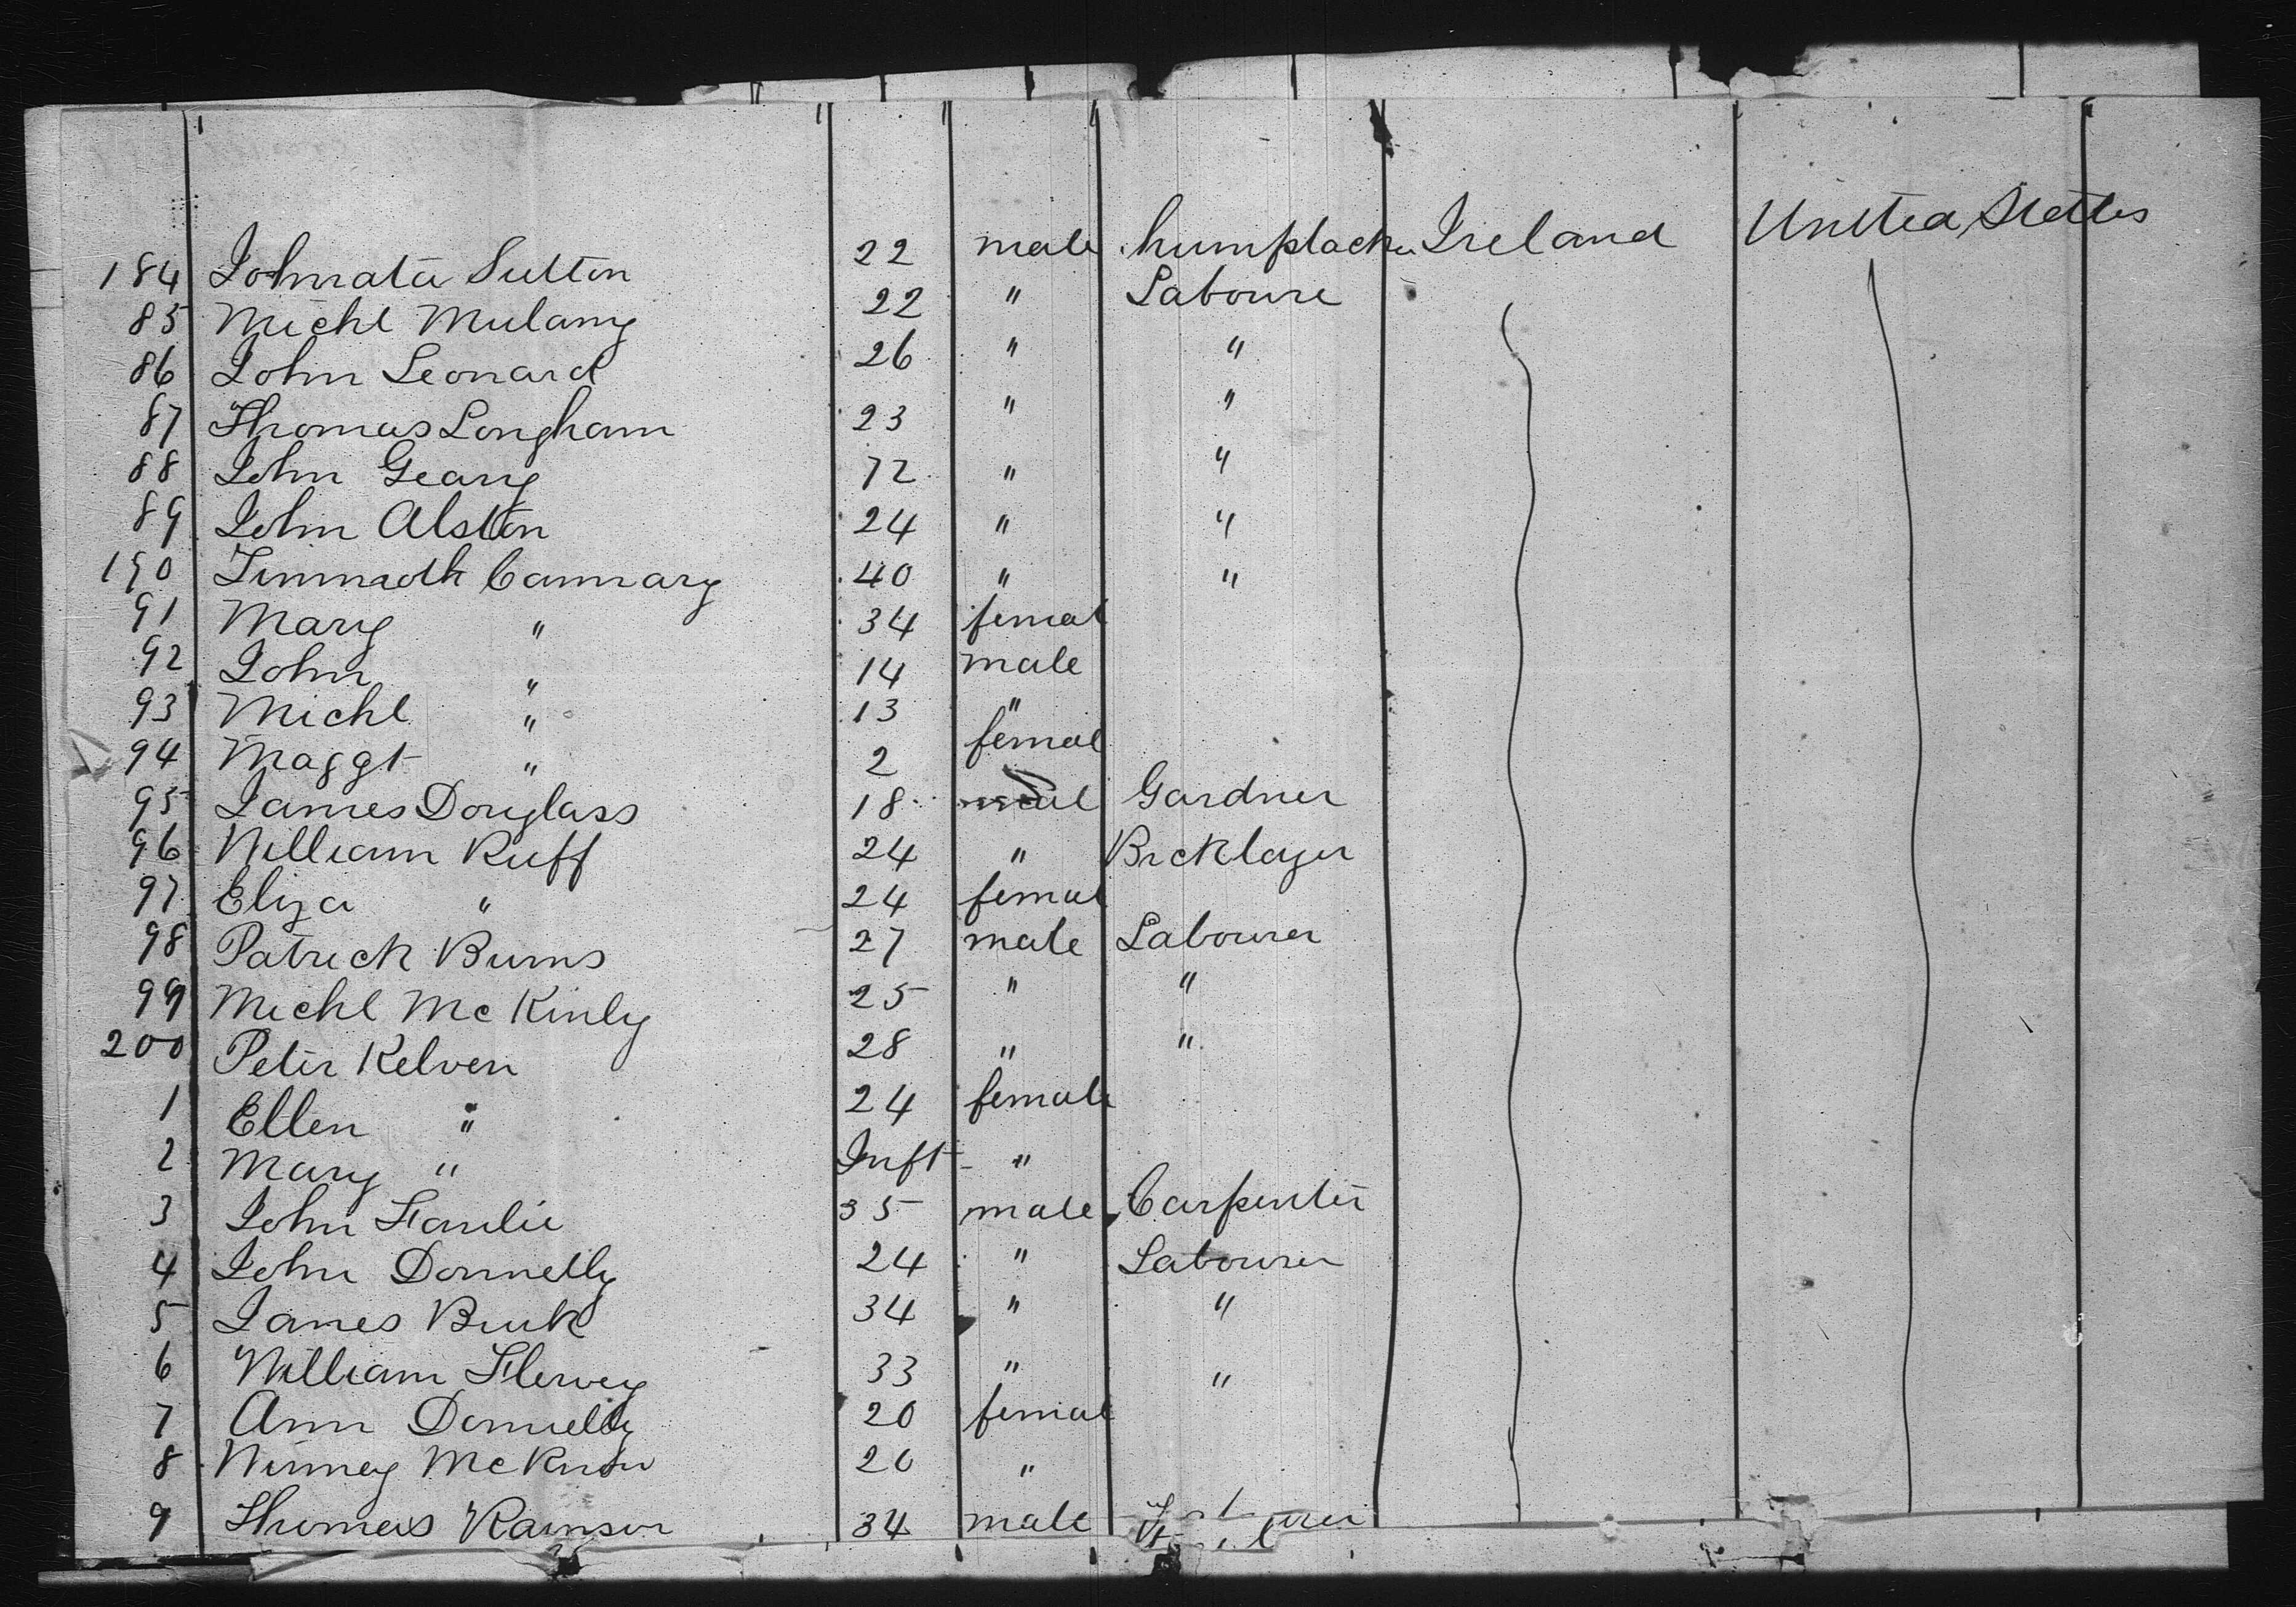 184 Johnata Sutton 22 male Ireland United States
85 Michl Mulany 22 " Laboure
86 John Leonard 26 " "
87 Thomas Longham 23 " "
88 John Geary 72 " "
89 John Alston 24 " "
190 Cannary 40 " "
91 Mary " 34 femal
92 John " 14 male
93 Michl " 13 "
94 Maggt " 2 femal
95 James Douglass 18 mal Gardner
96 William Ruff 24 " Brcklayer
97 Eliza " 24 femal
98 Patrick Burns 27 male Labourer
99 Michl McKinly 25 " "
200 Peter Kelven 28 " "
1 Ellen " 24 female
2 Mary " Inft "
3 John 35 male Carpenter
4 John Donnelly 24 " Labourer
5 James Burk 34 " "
6 William 33 " "
7 Ann Donnelly 20 femal
8 Winney 20 "
9 Thomas 34 male